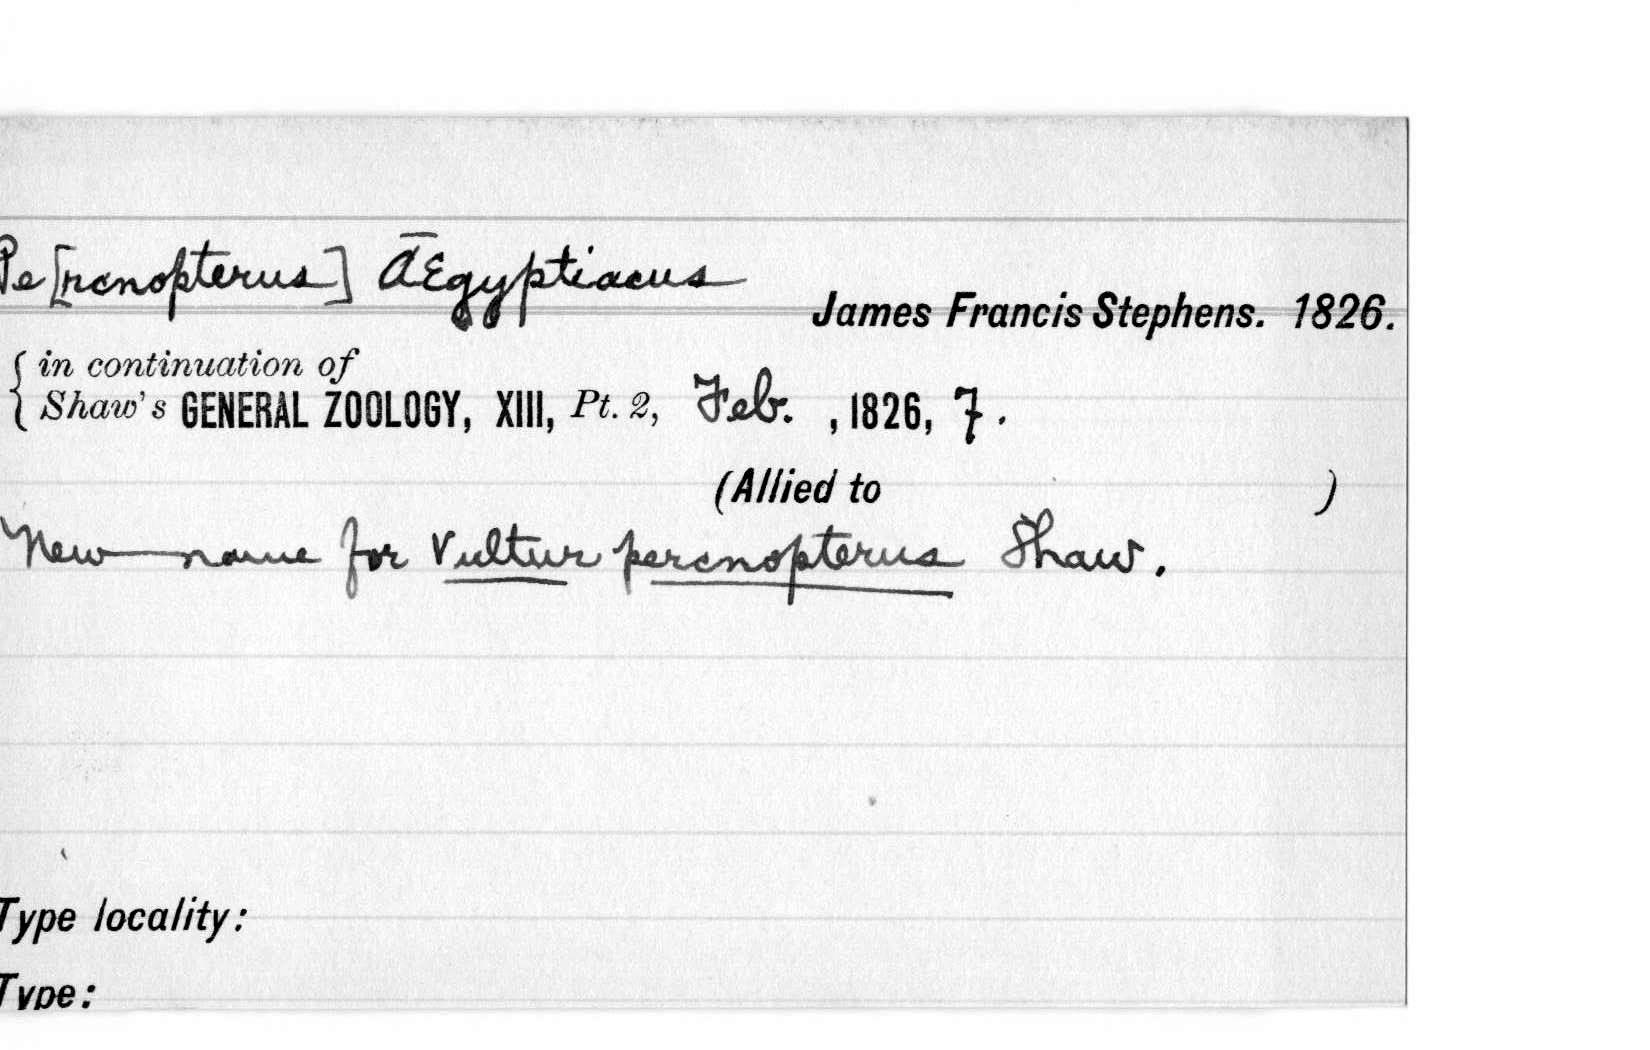 Pe[rcnopterus] Ægyptiacus
James Francis Stephens. 1826.
in continuation of
Shaw's GENERAL ZOOLOGY, XIII, Pt. 2, Feb. , 1826, 7.
(Allied to )
New name for Vultur percnopterus Shaw.
Type locality:
Type: